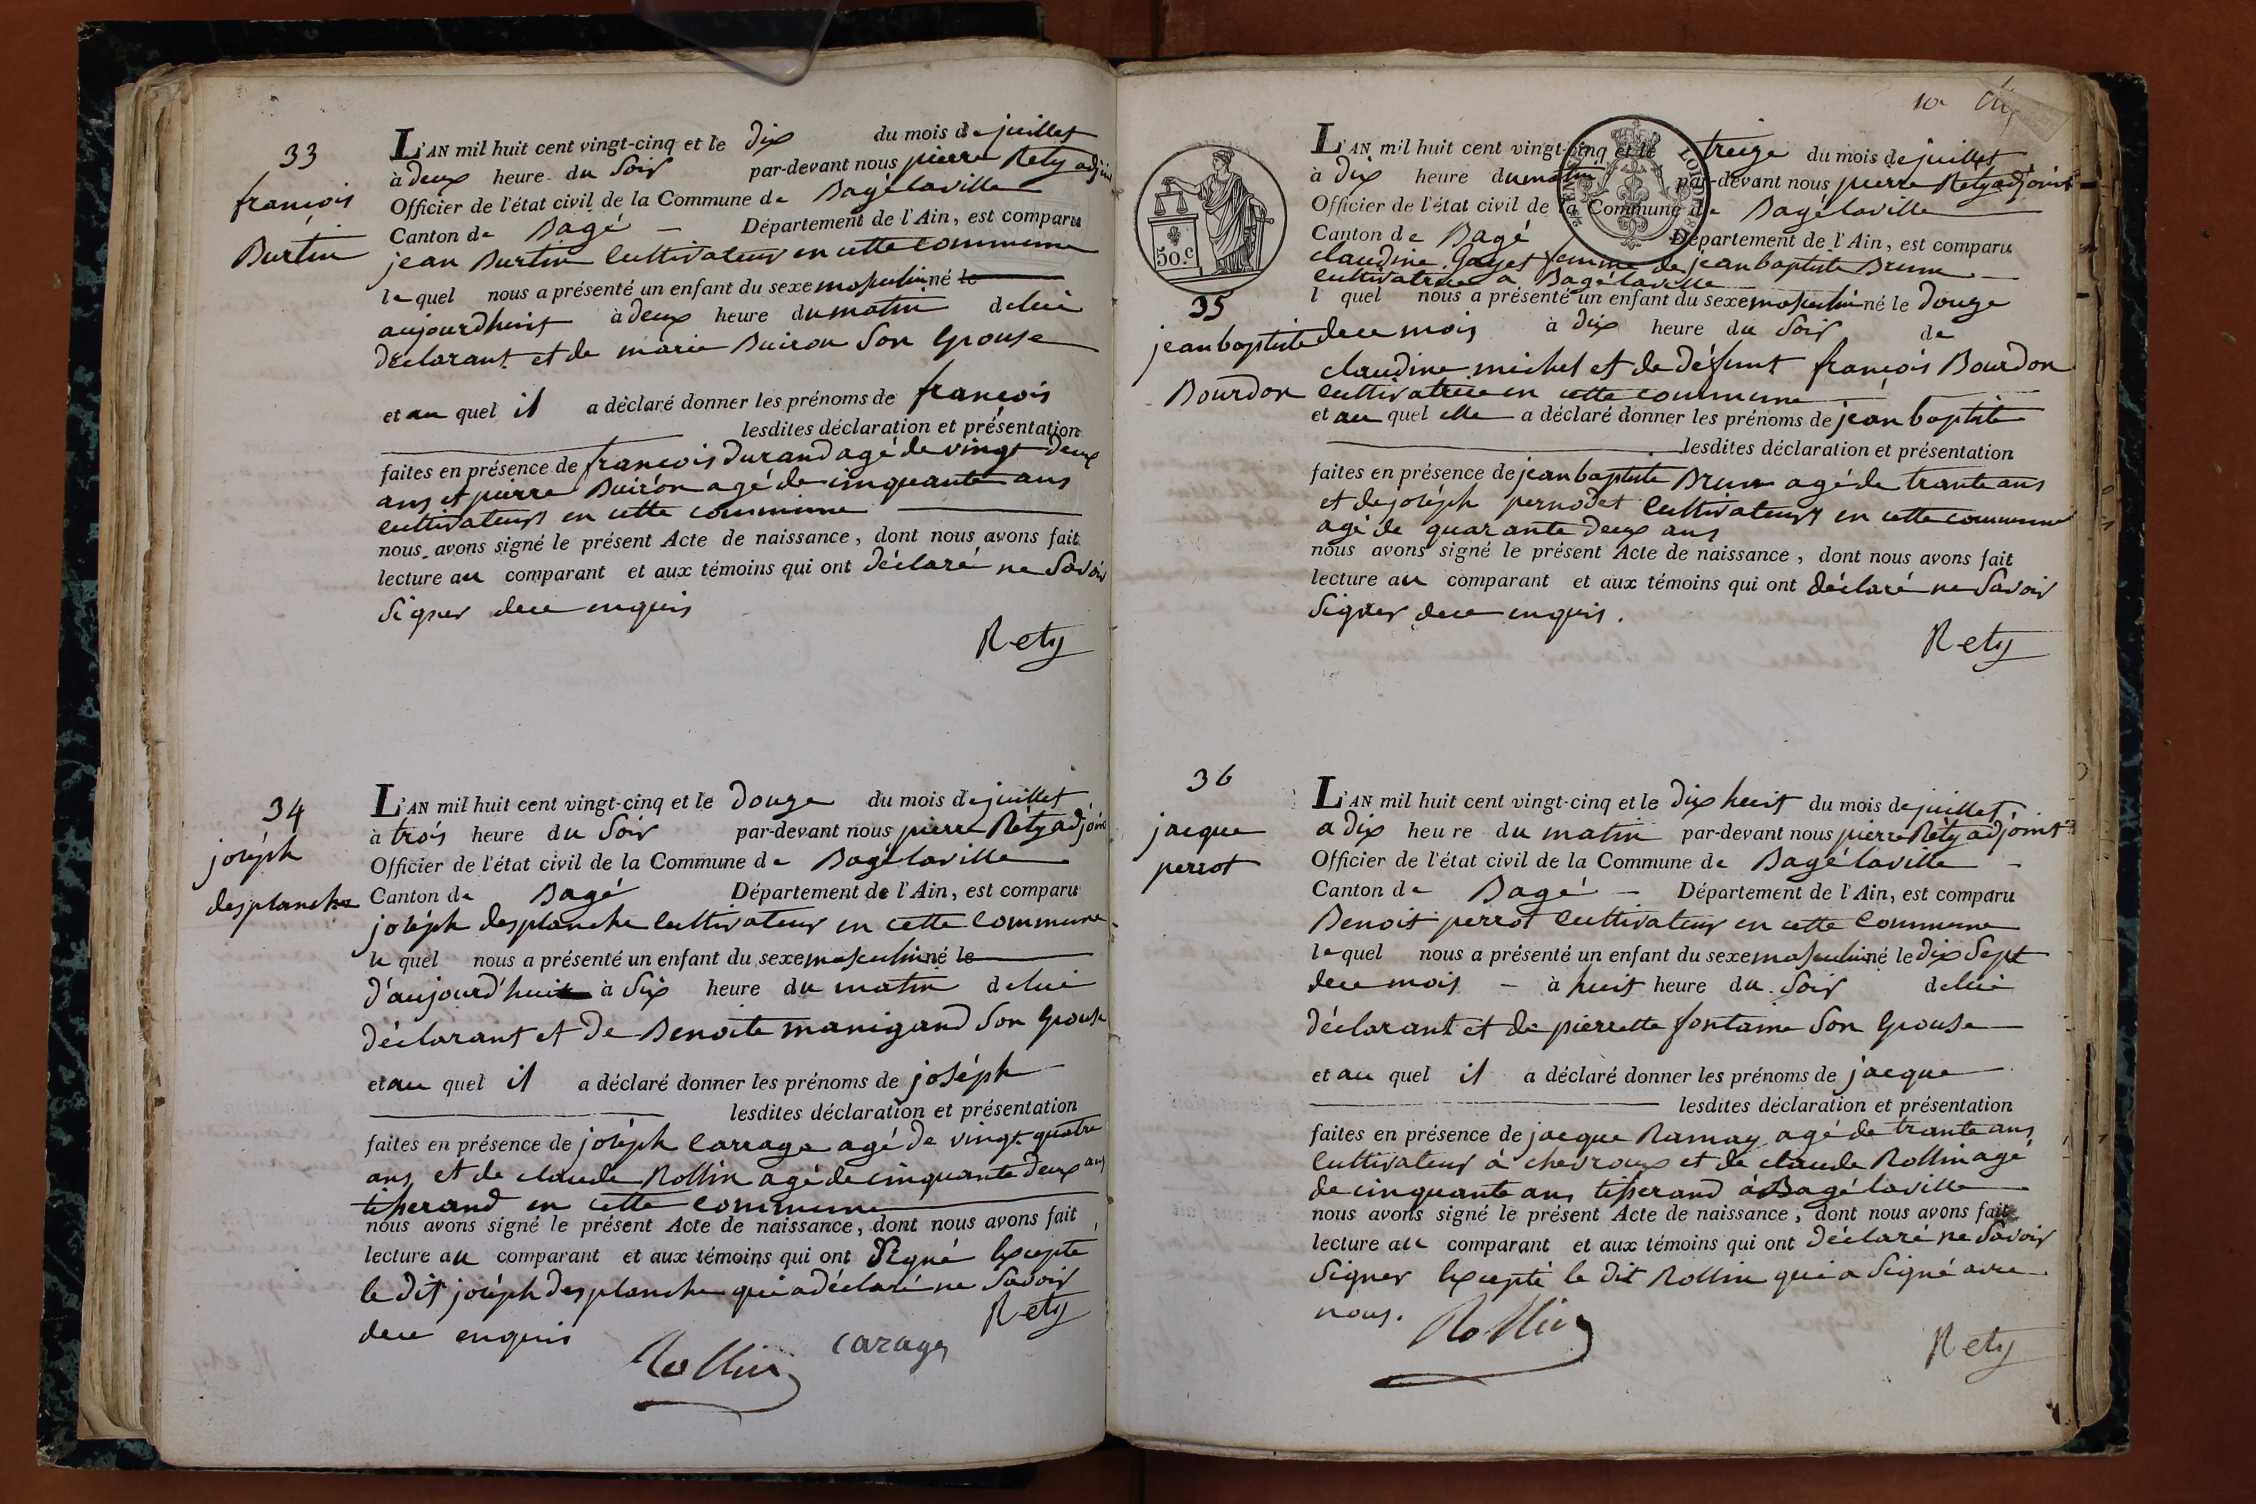 33
françois
Burtin
L'AN mil huit cent vingt-cinq et le dix du mois de juillet
à deux heure du Soir par-devant nous pierre Rety adjoint
Officier de l'état civil de la Commune de Bagélaville
Canton de Bagé Département de l'Ain, est comparu
jean Burtin Cultivateur en cette Commune
le quel nous a présenté un enfant du sexe masculin né le
aujourdhuit à deux heure du matin de lui
déclarant et de marie Buiron Son Epouse
et au quel il a déclaré donner les prénoms de françois
lesdites déclaration et présentation
faites en présence de françois durand agé de vingt deux
ans et pierre Buiron agé de cinquante ans
cultivateurs en cette commune
nous avons signé le présent Acte de naissance, dont nous avons fait
lecture au comparant et aux témoins qui ont déclaré ne Savoir
Signer dece enquis
Rety
34
joséph
desplanche
L'AN mil huit cent vingt-cinq et le douze du mois de juillet
à trois heure du Soir par-devant nous pierre Réty adjoint
Officier de l'état civil de la Commune de Bagélaville
Canton de Bagé Département de l'Ain, est comparu
joséph desplanche Cultivateur en cette Commune
le quel nous a présenté un enfant du sexe masculin né le
d'aujourd'huit à Six heure du matin de lui
déclarant et de Benoite manigand Son Epouse
et au quel il a déclaré donner les prénoms de joséph
lesdites déclaration et présentation
faites en présence de joséph Carrage agé de vingt quatre
ans et de claude Rollin agé de cinquante deux ans
tisserand en cette commune
nous avons signé le présent Acte de naissance, dont nous avons fait
lecture au comparant et aux témoins qui ont Signé Excepte
le dit joséph desplanche qui a déclaré ne Savoir
dece enquis
Rety
Rollin
carage
10
50.c
35
jean baptiste
Bourdon
L'AN mil huit cent vingt-cinq et le treize du mois de juillet
à dix heure du matin par-devant nous pierre Rety adjoint
Officier de l'état civil de la Commune de Bagélaville
Canton de Bagé Département de l'Ain, est comparu
claudine Gayet femme de jean baptiste Brun
cultivatrice a Bagélaville
l quel nous a présenté un enfant du sexe masculin né le douze
dece mois à dix heure du Soir de
claudine michel et de défunt françois Bourdon
cultivatrice en cette commune
et au quel elle a déclaré donner les prénoms de jean baptiste
lesdites déclaration et présentation
faites en présence de jean baptiste Brun agé de trante ans
et de joséph pernodet Cultivateurs en cette commune
agé de quarante deux ans
nous avons signé le présent Acte de naissance, dont nous avons fait
lecture au comparant et aux témoins qui ont déclaré ne Savoir
Signer dece enquis.
Rety
36
jacque
perrot
L'AN mil huit cent vingt-cinq et le dix huit du mois de juillet
a dix heure du matin par-devant nous pierre Réty adjoint
Officier de l'état civil de la Commune de Bagélaville
Canton de Bagé Département de l'Ain, est comparu
Benoit perrot Cultivateur en cette Commune
le quel nous a présenté un enfant du sexe masculin né le dix Sept
dece mois à huit heure du Soir de lui
déclarant et de pierrette fontaine Son Epouse
et au quel il a déclaré donner les prénoms de jacque
lesdites déclaration et présentation
faites en présence de jacque Ramay agé de trante ans
Cultivateur à chevroux et de claude Rollin agé
de cinquante ans tisserand à Bagélaville
nous avons signé le présent Acte de naissance, dont nous avons fait
lecture au comparant et aux témoins qui ont déclaré ne Savoir
Signer Excepté le dit Rollin qui a Signé avec
nous.
Rollin
Rety